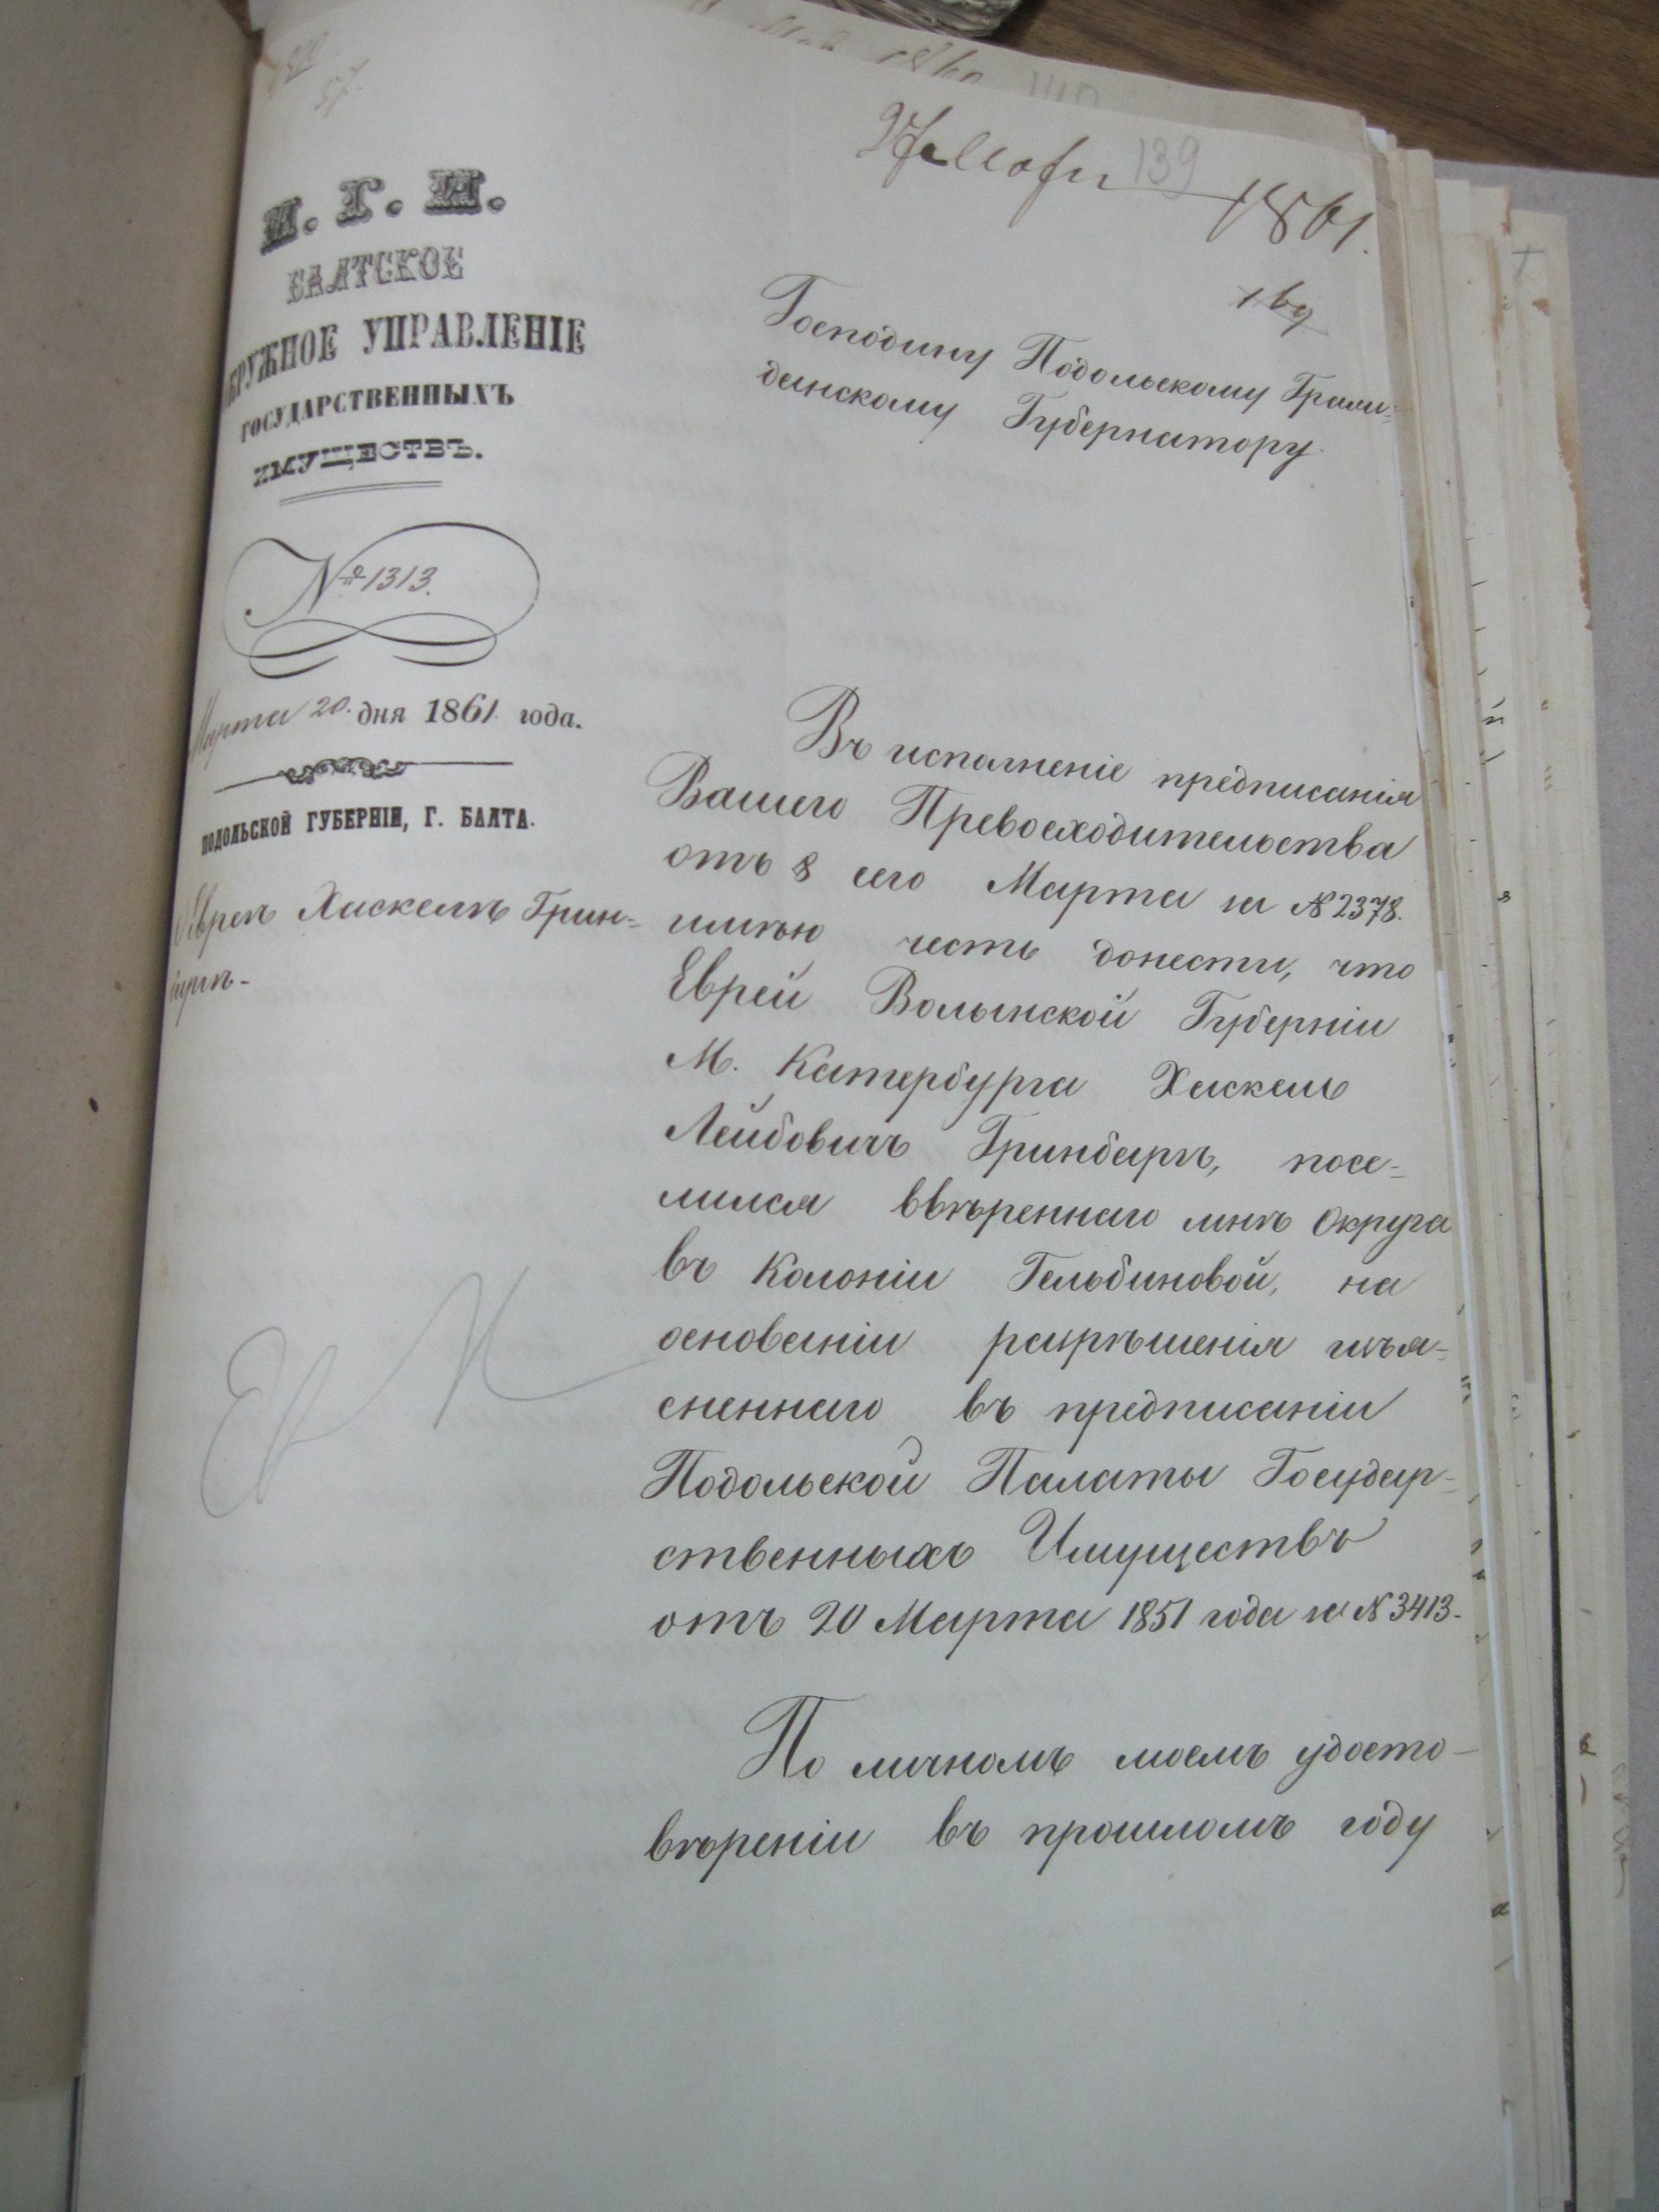 139
1861.
169
М. Г. И.
БАЛТСКОЕ
ОКРУЖНОЕ УПРАВЛЕНІЕ
ГОСУДАРСТВЕННЫХЪ
ИМУЩЕСТВЪ.
№ 1313.
Марта 20. дня 1861 года.
ПОДОЛЬСКОЙ ГУБЕРНІИ, Г. БАЛТА.
Хаскелѣ Грин-
Господину Подольскому Граж-
данскому Губернатору.
Въ исполненіе предписанія
Вашего Превосходительства
отъ 8 сего Марта за № 2378.
имѣю честь донести, что
Еврей Волынской Губерніи
М. Катербурга Хаскель
Лейбовичъ Гринбергъ, посе-
лился ввѣреннаго мнѣ Округа
въ Колоніи Гельбиновой, на
основаніи разрѣшенія изъя-
сненнаго въ предписаніи
Подольской Палаты Государ-
ственныхъ Имуществъ
отъ 20 Марта 1851 года за № 3413-
По личномъ моемъ удосто-
вѣреніи въ прошломъ году